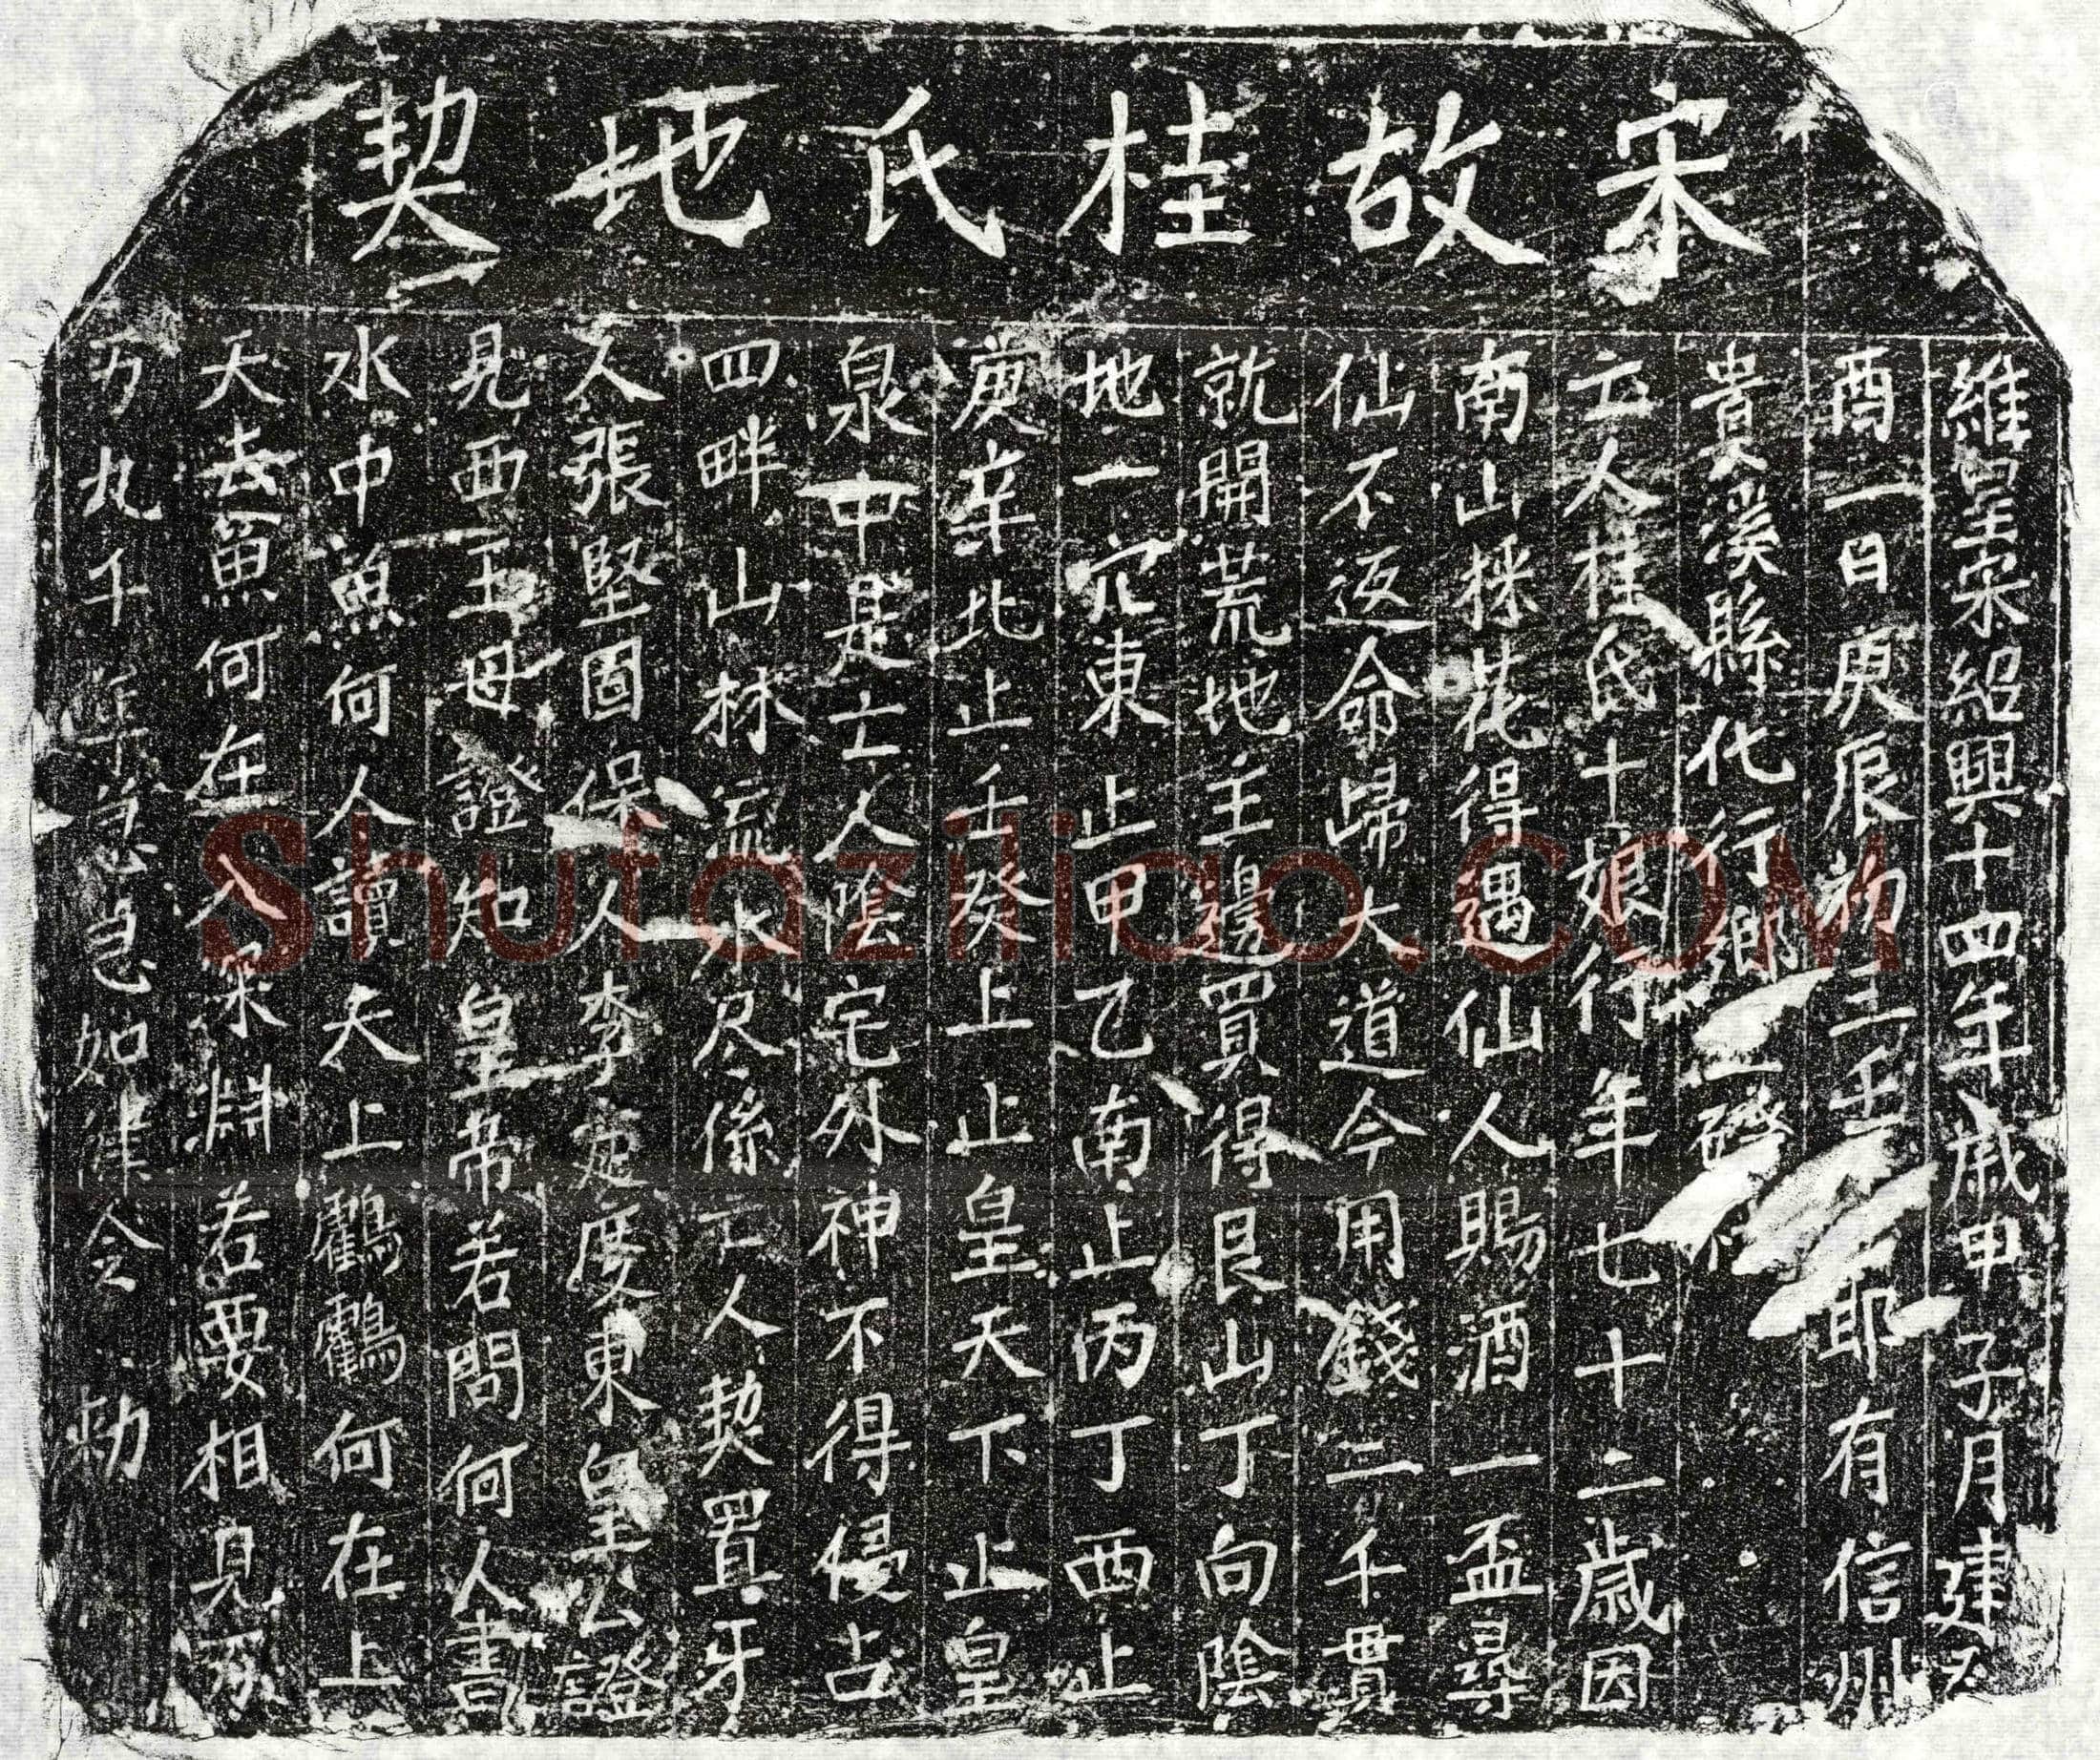 宋故桂氏地契
維皇宋紹興十四年歲甲子月建
酉一日庚辰初三壬耶有信州
貴溪縣化行鄉
亡人桂氏十娘行年七十二歲因
南山採花得遇仙人賜酒一盃尋
仙不返命歸大道今用錢二千貫
就開荒地主邊買得艮山丁向陰
地一穴東止甲乙南止丙丁西止
庚辛北止壬癸上止皇天下止皇
泉中是亡人陰宅外神不得侵占
四畔山林流水尽係亡人契置牙
人張堅固保人李定度東皇公證
見西王母證知皇帝若問何人書
水中魚何人讀天上鸖鸖何在上
天去魚何在入深淵若要相見萬
万九千年急急如律令勑
Shufaziliao.COM